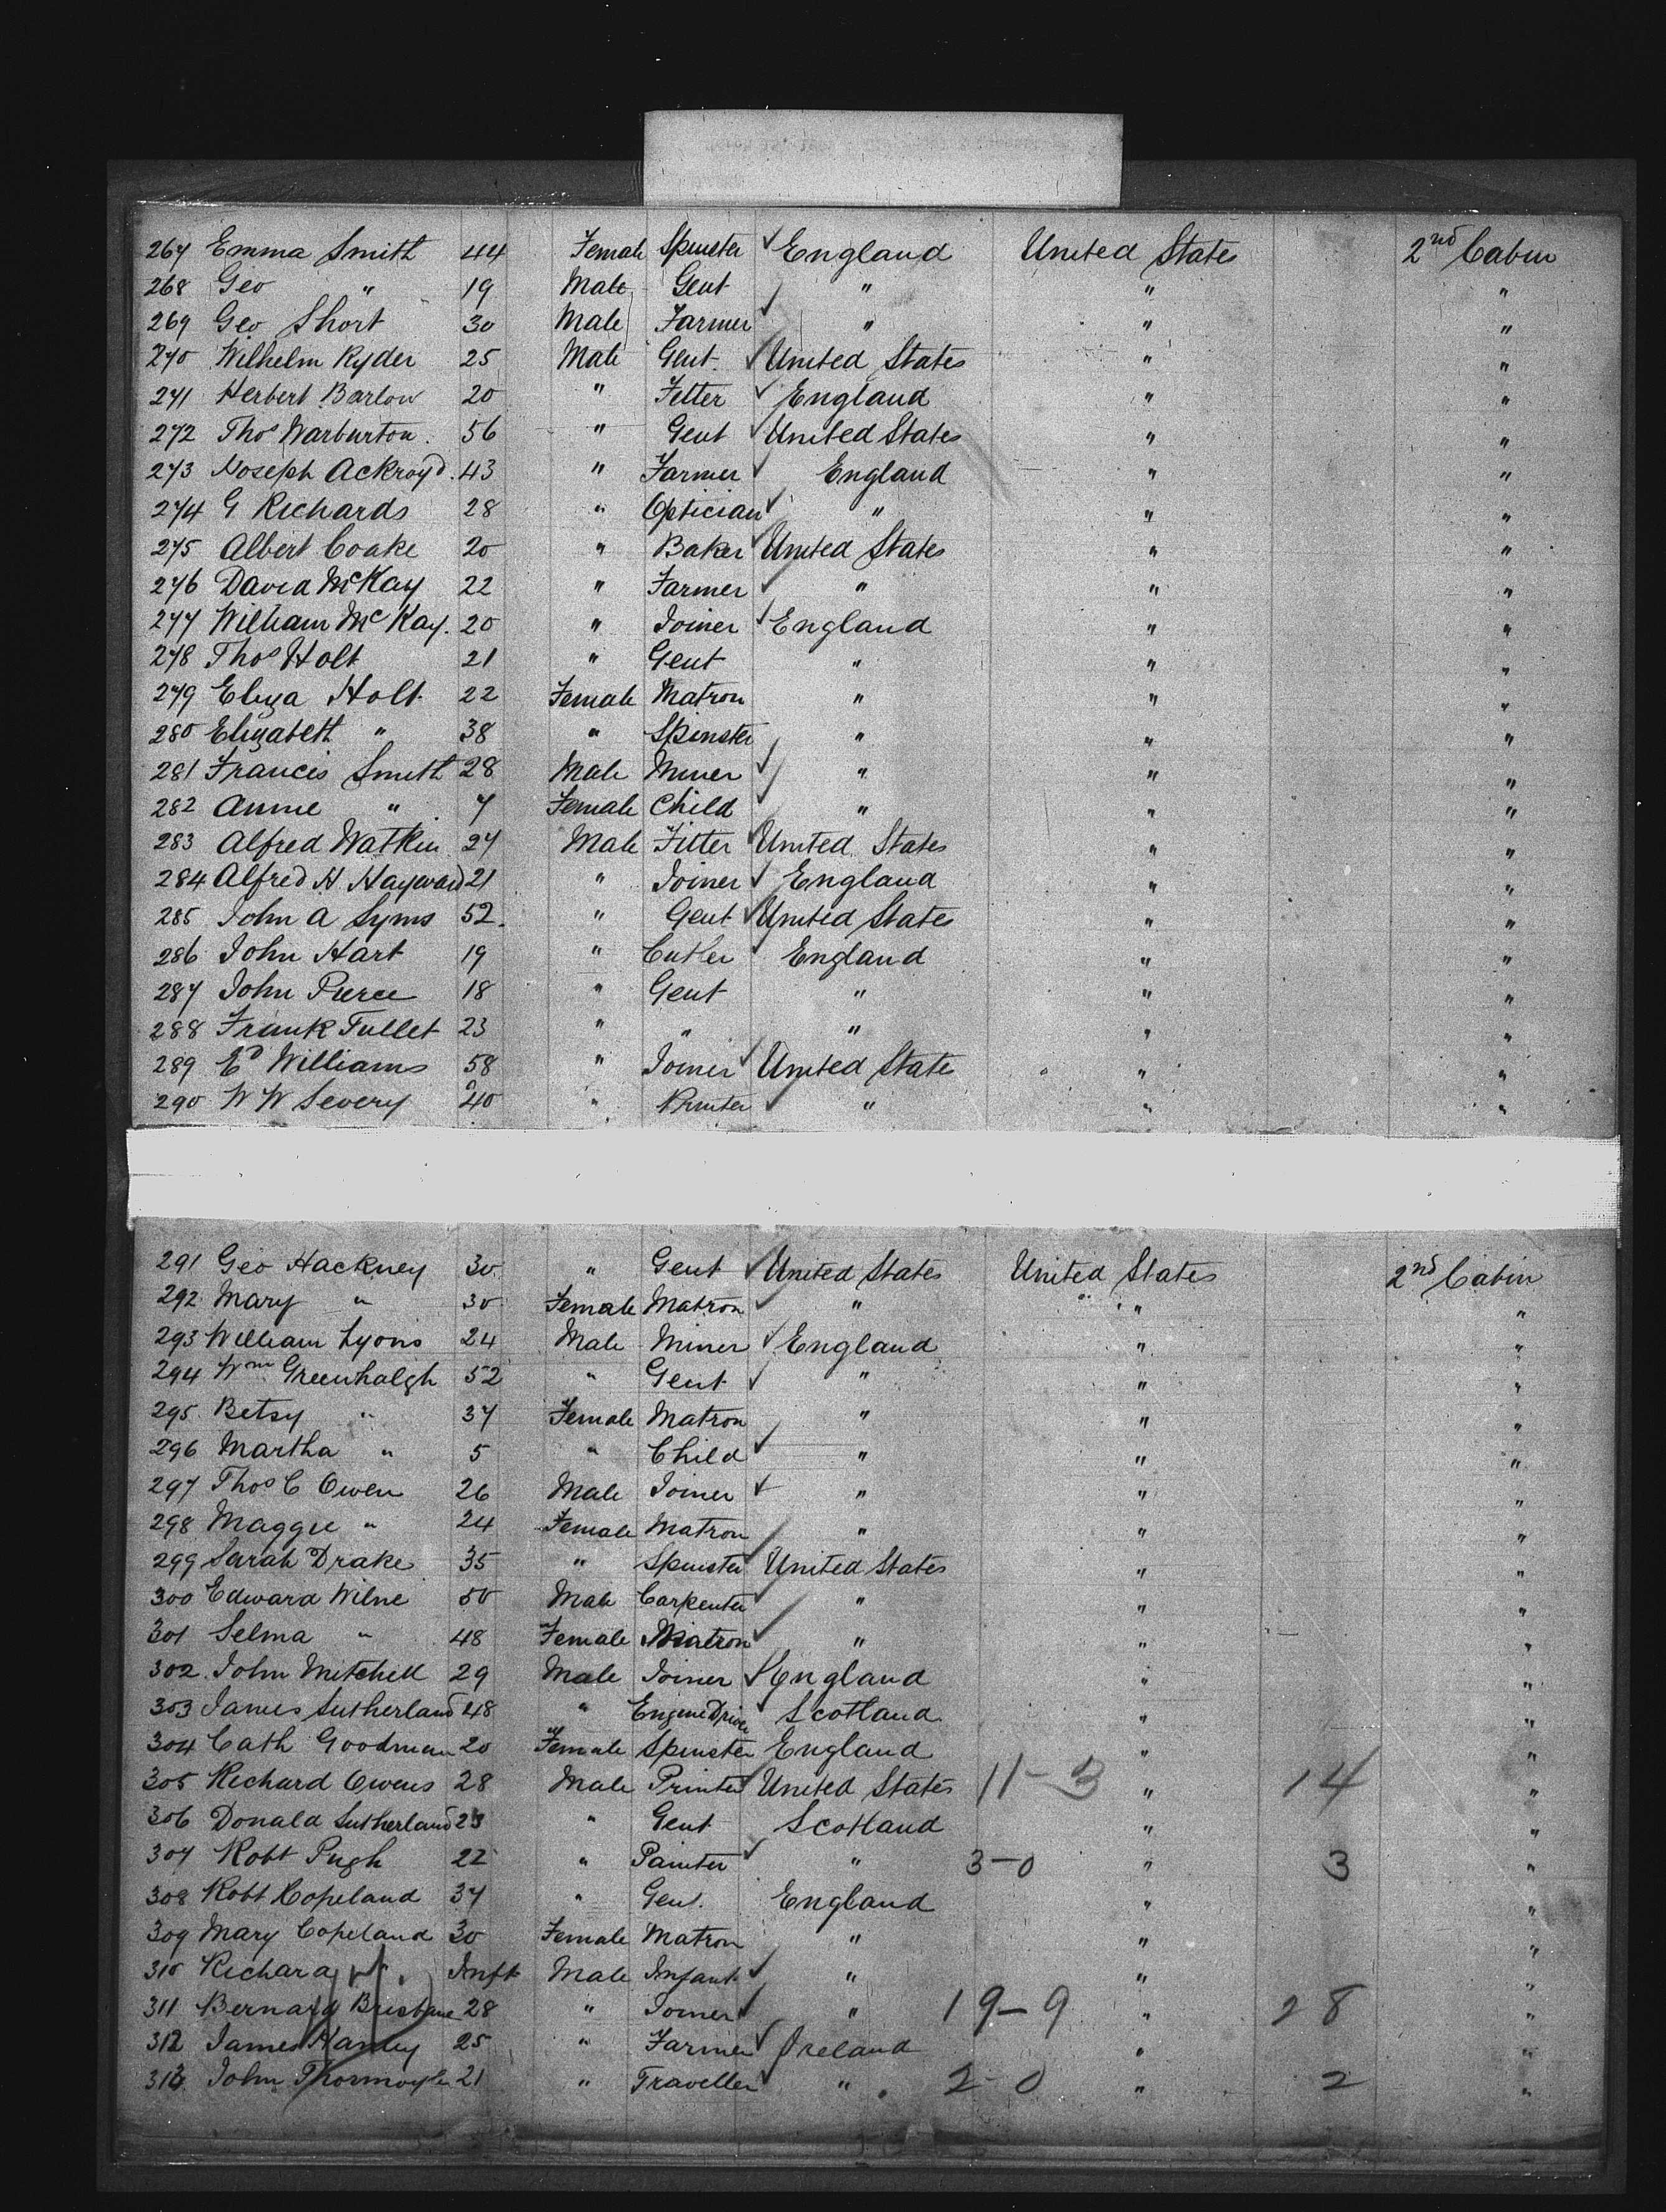 267 Emma Smith 44 Female Spinster ✓ England United States 2nd Cabin
268 Geo " 19 Male Gent " " "
269 Geo Short 30 Male Farmer ✓ " " "
270 Wilhelm Ryder 25 Male Gent. ✓ United States " "
271 Herbert Barlow 20 " Fitter ✓ England " "
272 Thos Warburton. 56 " Gent ✓ United States " "
273 Joseph Ackroyd. 43 " Farmer ✓ England " "
274 G Richards 28 " Optician ✓ " " "
275 Albert Coake 20 " Baker ✓ United States " "
276 David McKay 22 " Farmer ✓ " " "
277 William McKay. 20 " Joiner ✓ England " "
278 Thos Holt 21 " Gent " " "
279 Eliza Holt 22 Female Matron " " "
280 Elizabeth " 38 " Spinster " " "
281 Francis Smith 28 Male Miner ✓ " " "
282 Annie " 7 Female Child ✓ " " "
283 Alfred Watkin 27 Male Fitter ✓ United States " "
284 Alfred H Hayward 21 " Joiner ✓ England " "
285 John A Syms 52. " Gent ✓ United States " "
286 John Hart 19 " Cutler ✓ England " "
287 John Pierce 18 " Gent " " "
288 Frank Tullet 23 " " " " "
289 Ed Williams 58 " Joiner ✓ United States " "
290 W W Severy 40 " Printer ✓ " " "
291 Geo Hackney 30 " Gent ✓ United States United States 2nd Cabin
292 Mary " 30 Female Matron ✓ " " "
293 William Lyons 24 Male Miner ✓ England " "
294 Wm Greenhalgh 52 " Gent ✓ " " "
295 Betsy " 37 Female Matron " " "
296 Martha " 5 " Child ✓ " " "
297 Thos C Owen 26 Male Joiner ✓ " " "
298 Maggie " 24 Female Matron " " "
299 Sarah Drake 35 " Spinster ✓ United States " "
300 Edward Wilne 50 Male Carpenter ✓ " " "
301 Selma " 48 Female Matron ✓ " " "
302 John Mitchell 29 Male Joiner ✓ England " "
303 James Sutherland 48 " Engine Driver Scotland " "
304 Cath Goodman 20 Female Spinster England " "
305 Richard Owens 28 Male Printer ✓ United States 11-3 " 14 "
306 Donald Sutherland 23 " Gent Scotland " "
307 Robt Pugh 22 " Painter ✓ " 3-0 " 3 "
308 Robt Copeland 37 " Gent. England " "
309 Mary Copeland 30 Female Matron " " "
310 Richard Inft Male Infant ✓ " " "
311 Bernard Brisbane 28 " Joiner ✓ " 19-9 " 28 "
312 James Hanley 25 " Farmer ✓ Ireland " "
313 John 21 " Traveller ✓ " 2-0 " 2 "